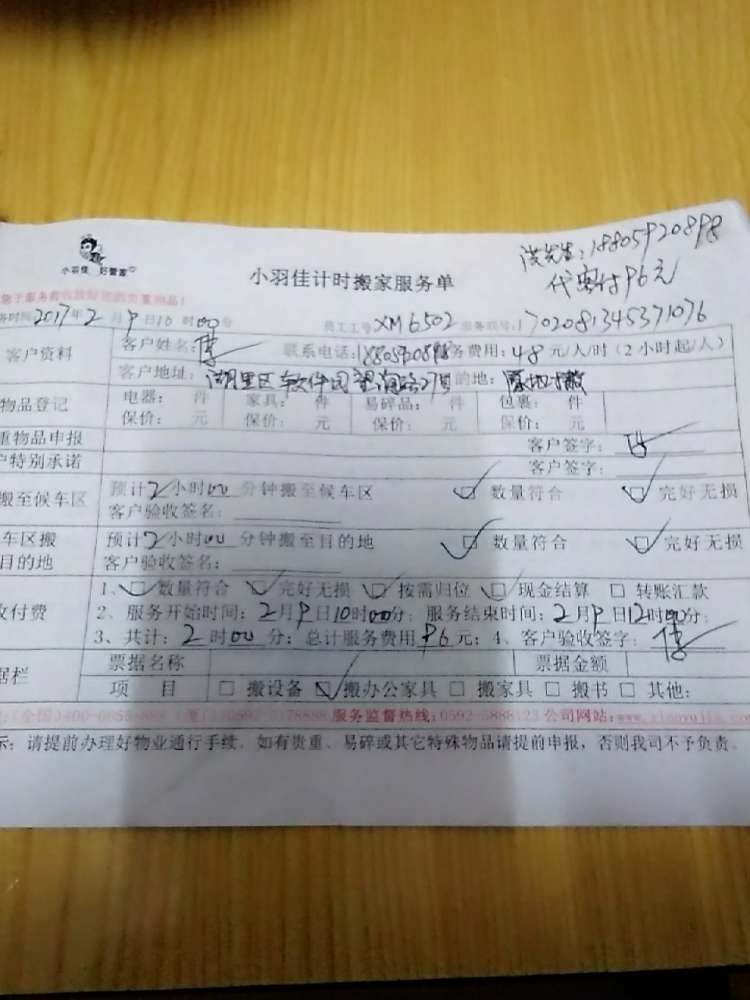 小羽佳 好管家
小羽佳计时搬家服务单
18805920898
代客付96元
2017年2月9日10时00分 员工工号XM6502 服务联号:170208134537 1076
客户资料 客户姓名: 联系电话: 服务费用:48元/人/时(2小时起/人)
客户地址:湖里区软件园望海路27号 目的地:原地搬
物品登记 电器: 件 家具: 件 易碎品: 件 包裹: 件
保价: 元 保价: 元 保价: 元 保价: 元
重物品申报 客户签字:
户特别承诺 客户签字:
搬至候车区 预计2小时00分钟搬至候车区 数量符合 完好无损
客户验收签名:
车区搬 预计2小时00分钟搬至目的地 数量符合 完好无损
目的地 客户验收签名:
收付费 1、数量符合 完好无损 按需归位 现金结算 转账汇款
2、服务开始时间:2月9日10时00分;服务结束时间:2月9日12时00分;
3、共计:2时00分;总计服务费用96元;4、客户验收签字:
据栏 票据名称 票据金额
项 目 搬设备 搬办公家具 搬家具 搬书 其他:
服务监督热线:0592-5888123 公司网站:www.xiaoyujia.com
示:请提前办理好物业通行手续。如有贵重、易碎或其它特殊物品请提前申报,否则我司不予负责。